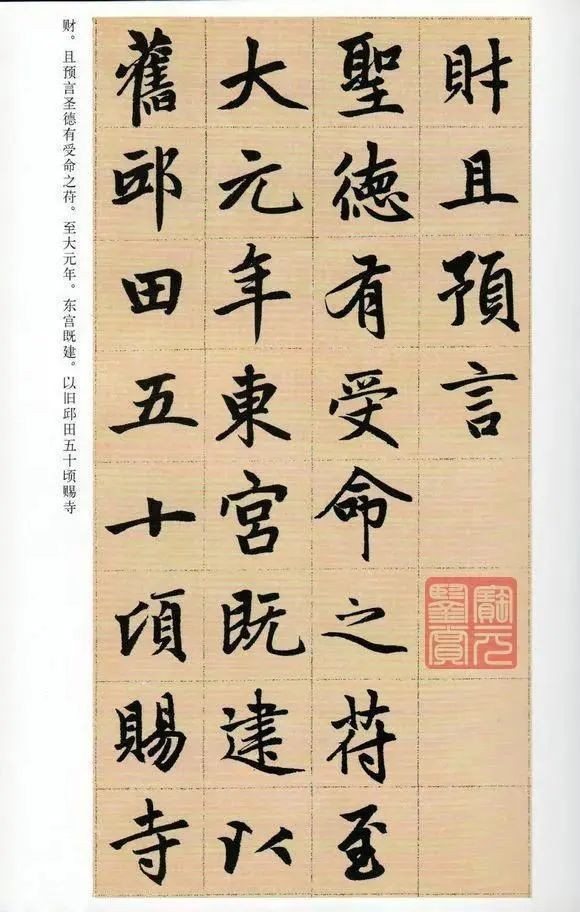 財且預言
聖德有受命之苻至
大元年東宮既建以
舊邱田五十頃賜寺
财。且预言圣德有受命之苻。至大元年。东宫既建。以旧邱田五十顷赐寺